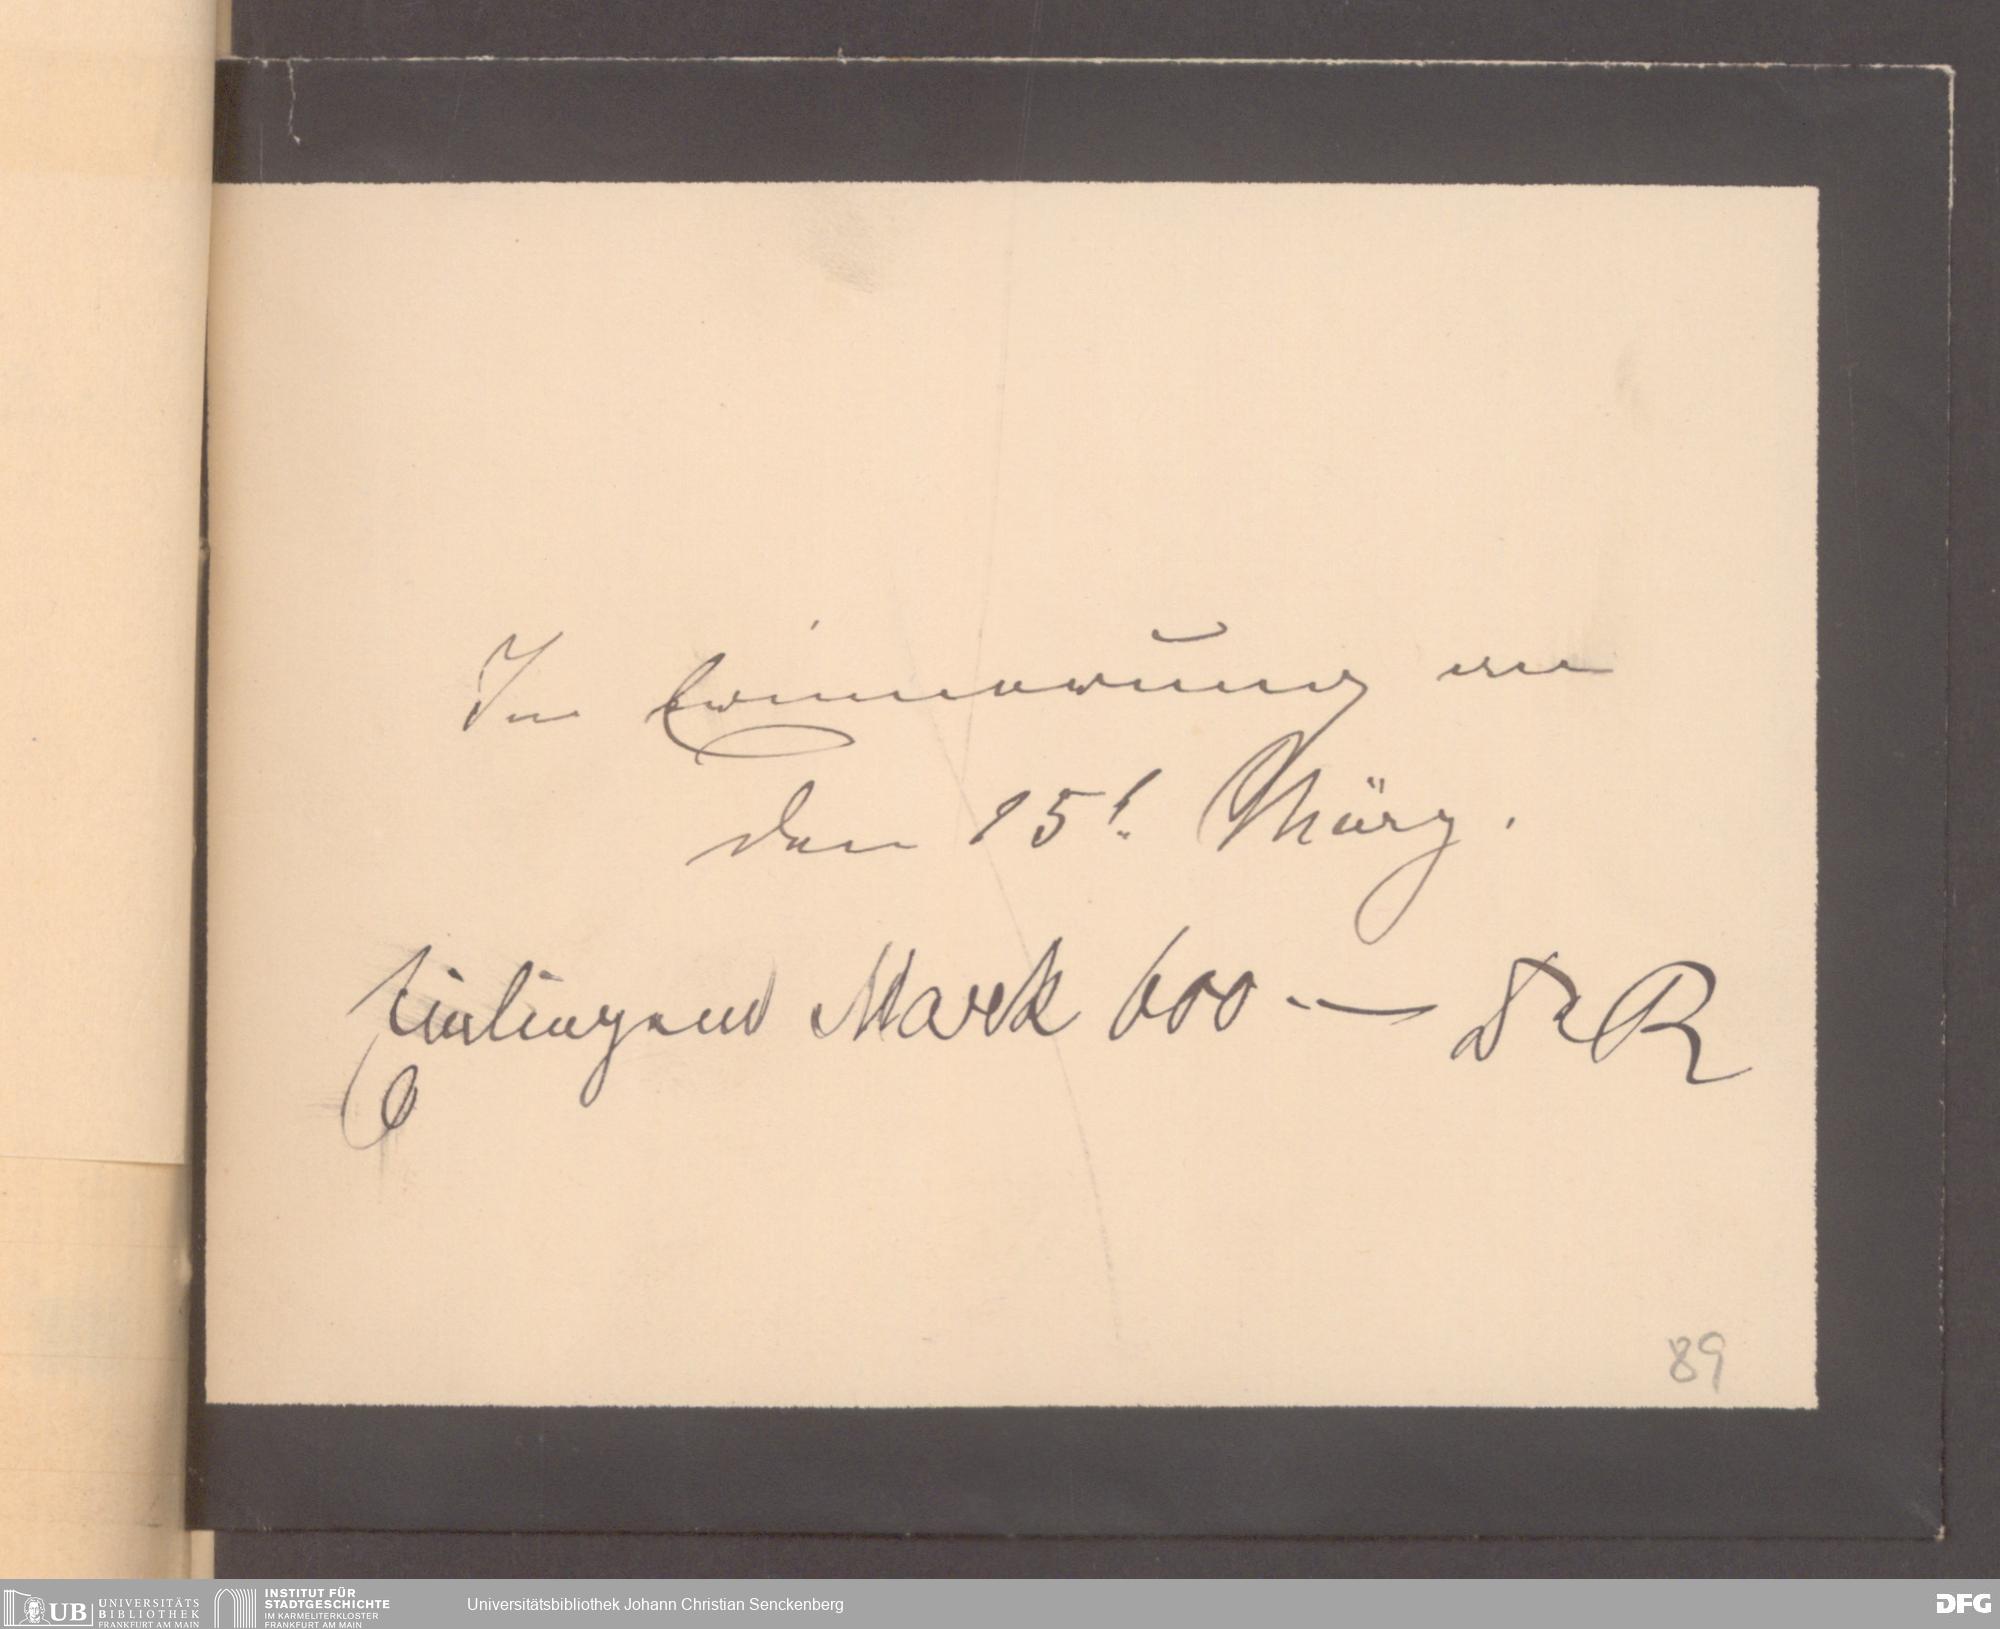 In Erinnerung an
den 15t. März.
Einliegend Mark 600 — Dr R
89
UB
UNIVERSITÄTS
BIBLIOTHEK
FRANKFURT AM MAIN
INSTITUT FÜR
STADTGESCHICHTE
IM KARMELITERKLOSTER
FRANKFURT AM MAIN
Universitätsbibliothek Johann Christian Senckenberg
DFG